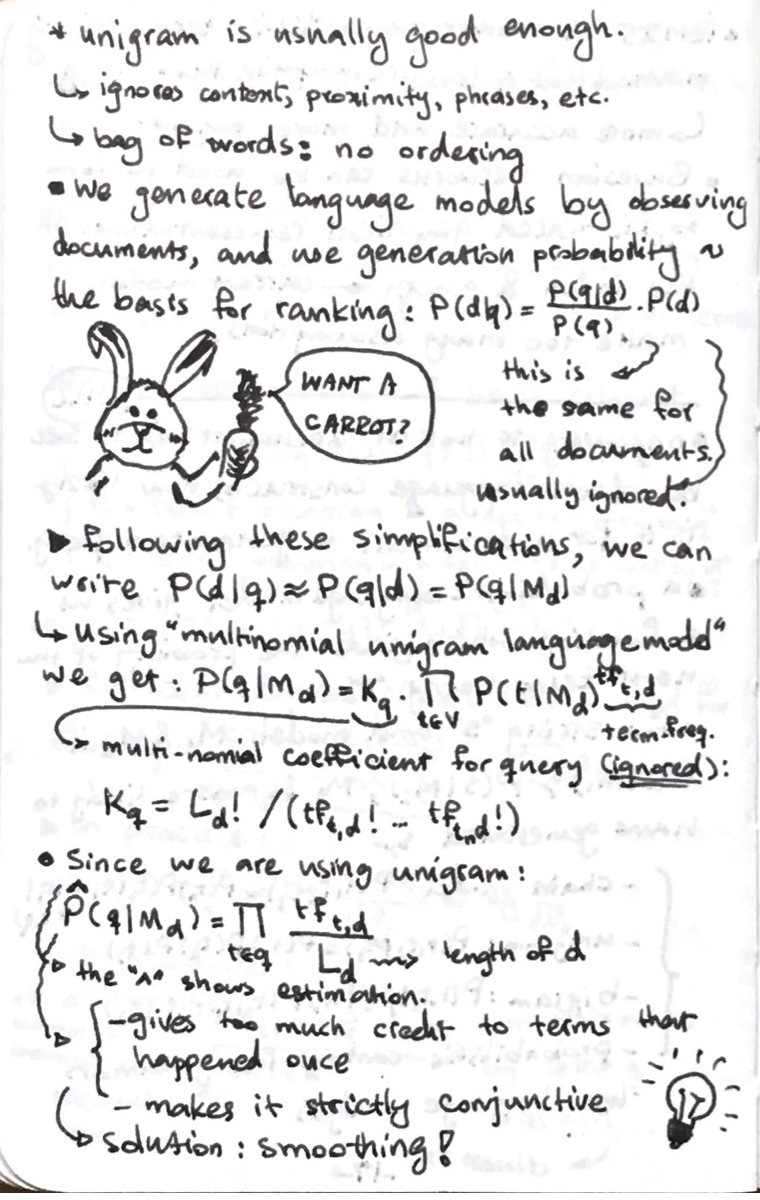 * unigram is usually good enough.
↳ ignores context, proximity, phrases, etc.
↳ bag of words: no ordering
• We generate language models by observing
documents, and use generation probability ~
the basis for ranking: P(d|q) = P(q|d)/P(q) · P(d)
WANT A
CARROT?
this is
the same for
all documents.
usually ignored!
▶ Following these simplifications, we can
write P(d|q) ≈ P(q|d) = P(q|M_d)
↳ using "multinomial unigram language model"
we get: P(q|M_d) = K_q · ∏_{t∈V} P(t|M_d)^{tf_{t,d}}
term freq.
→ multi-nomial coefficient for query (ignored):
K_q = L_d! / (tf_{t_1,d}! ... tf_{t_n,d}!)
• Since we are using unigram:
P̂(q|M_d) = ∏_{t∈q} tf_{t,d} / L_d ⇝ length of d
▷ the "^" shows estimation.
- gives too much credit to terms that
happened once
- makes it strictly conjunctive
▷ Solution: smoothing!